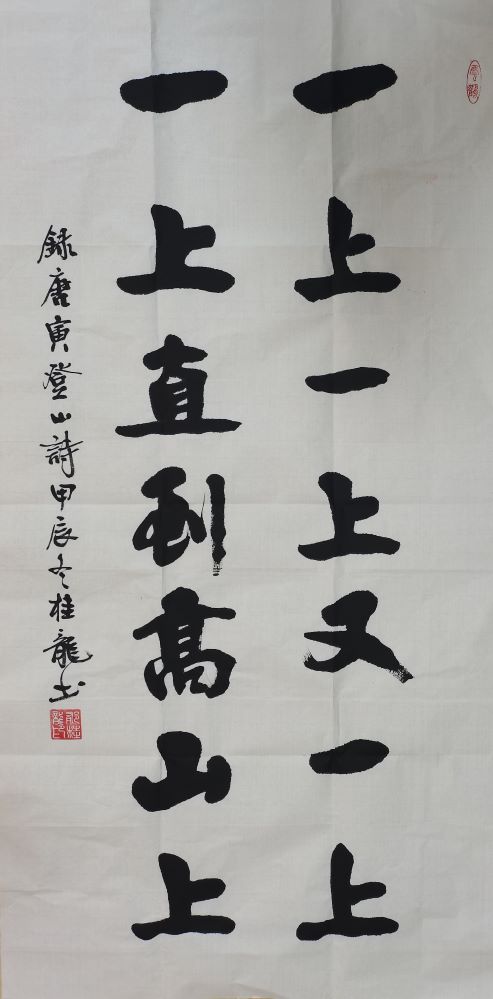 一上一上又一上
一上直到高山上
録唐寅登山詩甲辰冬桂龍书